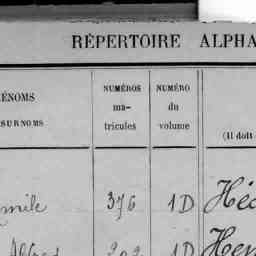 RÉPERTOIRE ALPHA
ÉNOMS
SURNOMS
NUMÉROS
ma-
tricules
NUMÉRO
du
volume
(Il doit
mile 376 1D Héc
Alfred 202 1D Hen